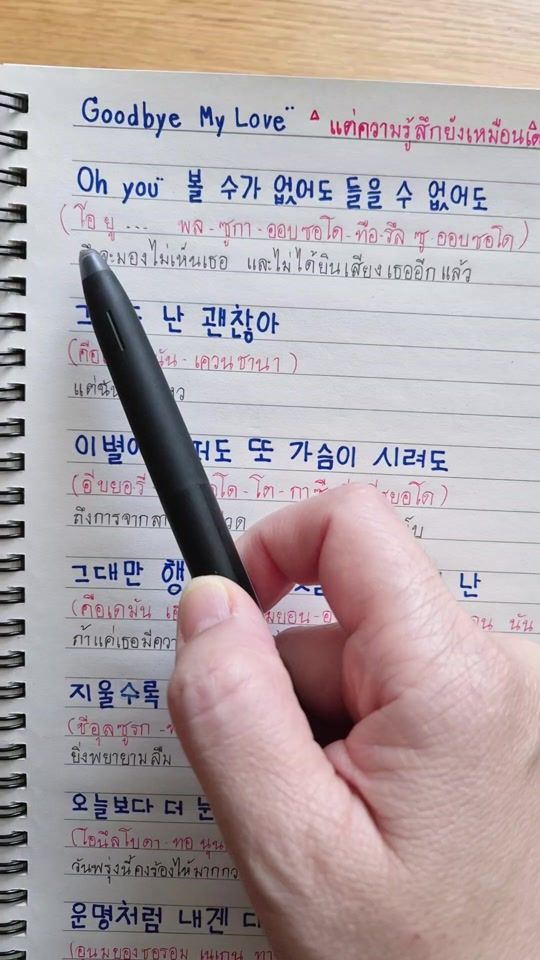 Goodbye My Love ▵ แต่ความรู้สึกยังเหมือนเดิ
Oh you 볼 수가 없어도 들을 수 없어도
(โอ ยู ... พล - ซูกา - ออบซอโด - ทือ-รึล ซู ออบซอโด)
จะมองไม่เห็นเธอ และไม่ได้ยินเสียงเธออีกแล้ว
난 괜찮아
นัน - เควนชานา)
แต่
또 가슴이 시려도
(อีบยอรี โด - โต - กาซึ
ถึงการจาก
그대만 행 난
(คือเดมัน นัน
ถ้าแค่เธอมีควา
지울수록
(ชีอุลซูรก -
ยิ่งพยายามลืม
오늘보다 더 눈
(โอนึลโบดา - ทอ นุน
วันพรุ่งนี้คงร้องไห้มากกว
운명처럼 내겐 다
(อุนมยองชอรอม เนเกน ทา